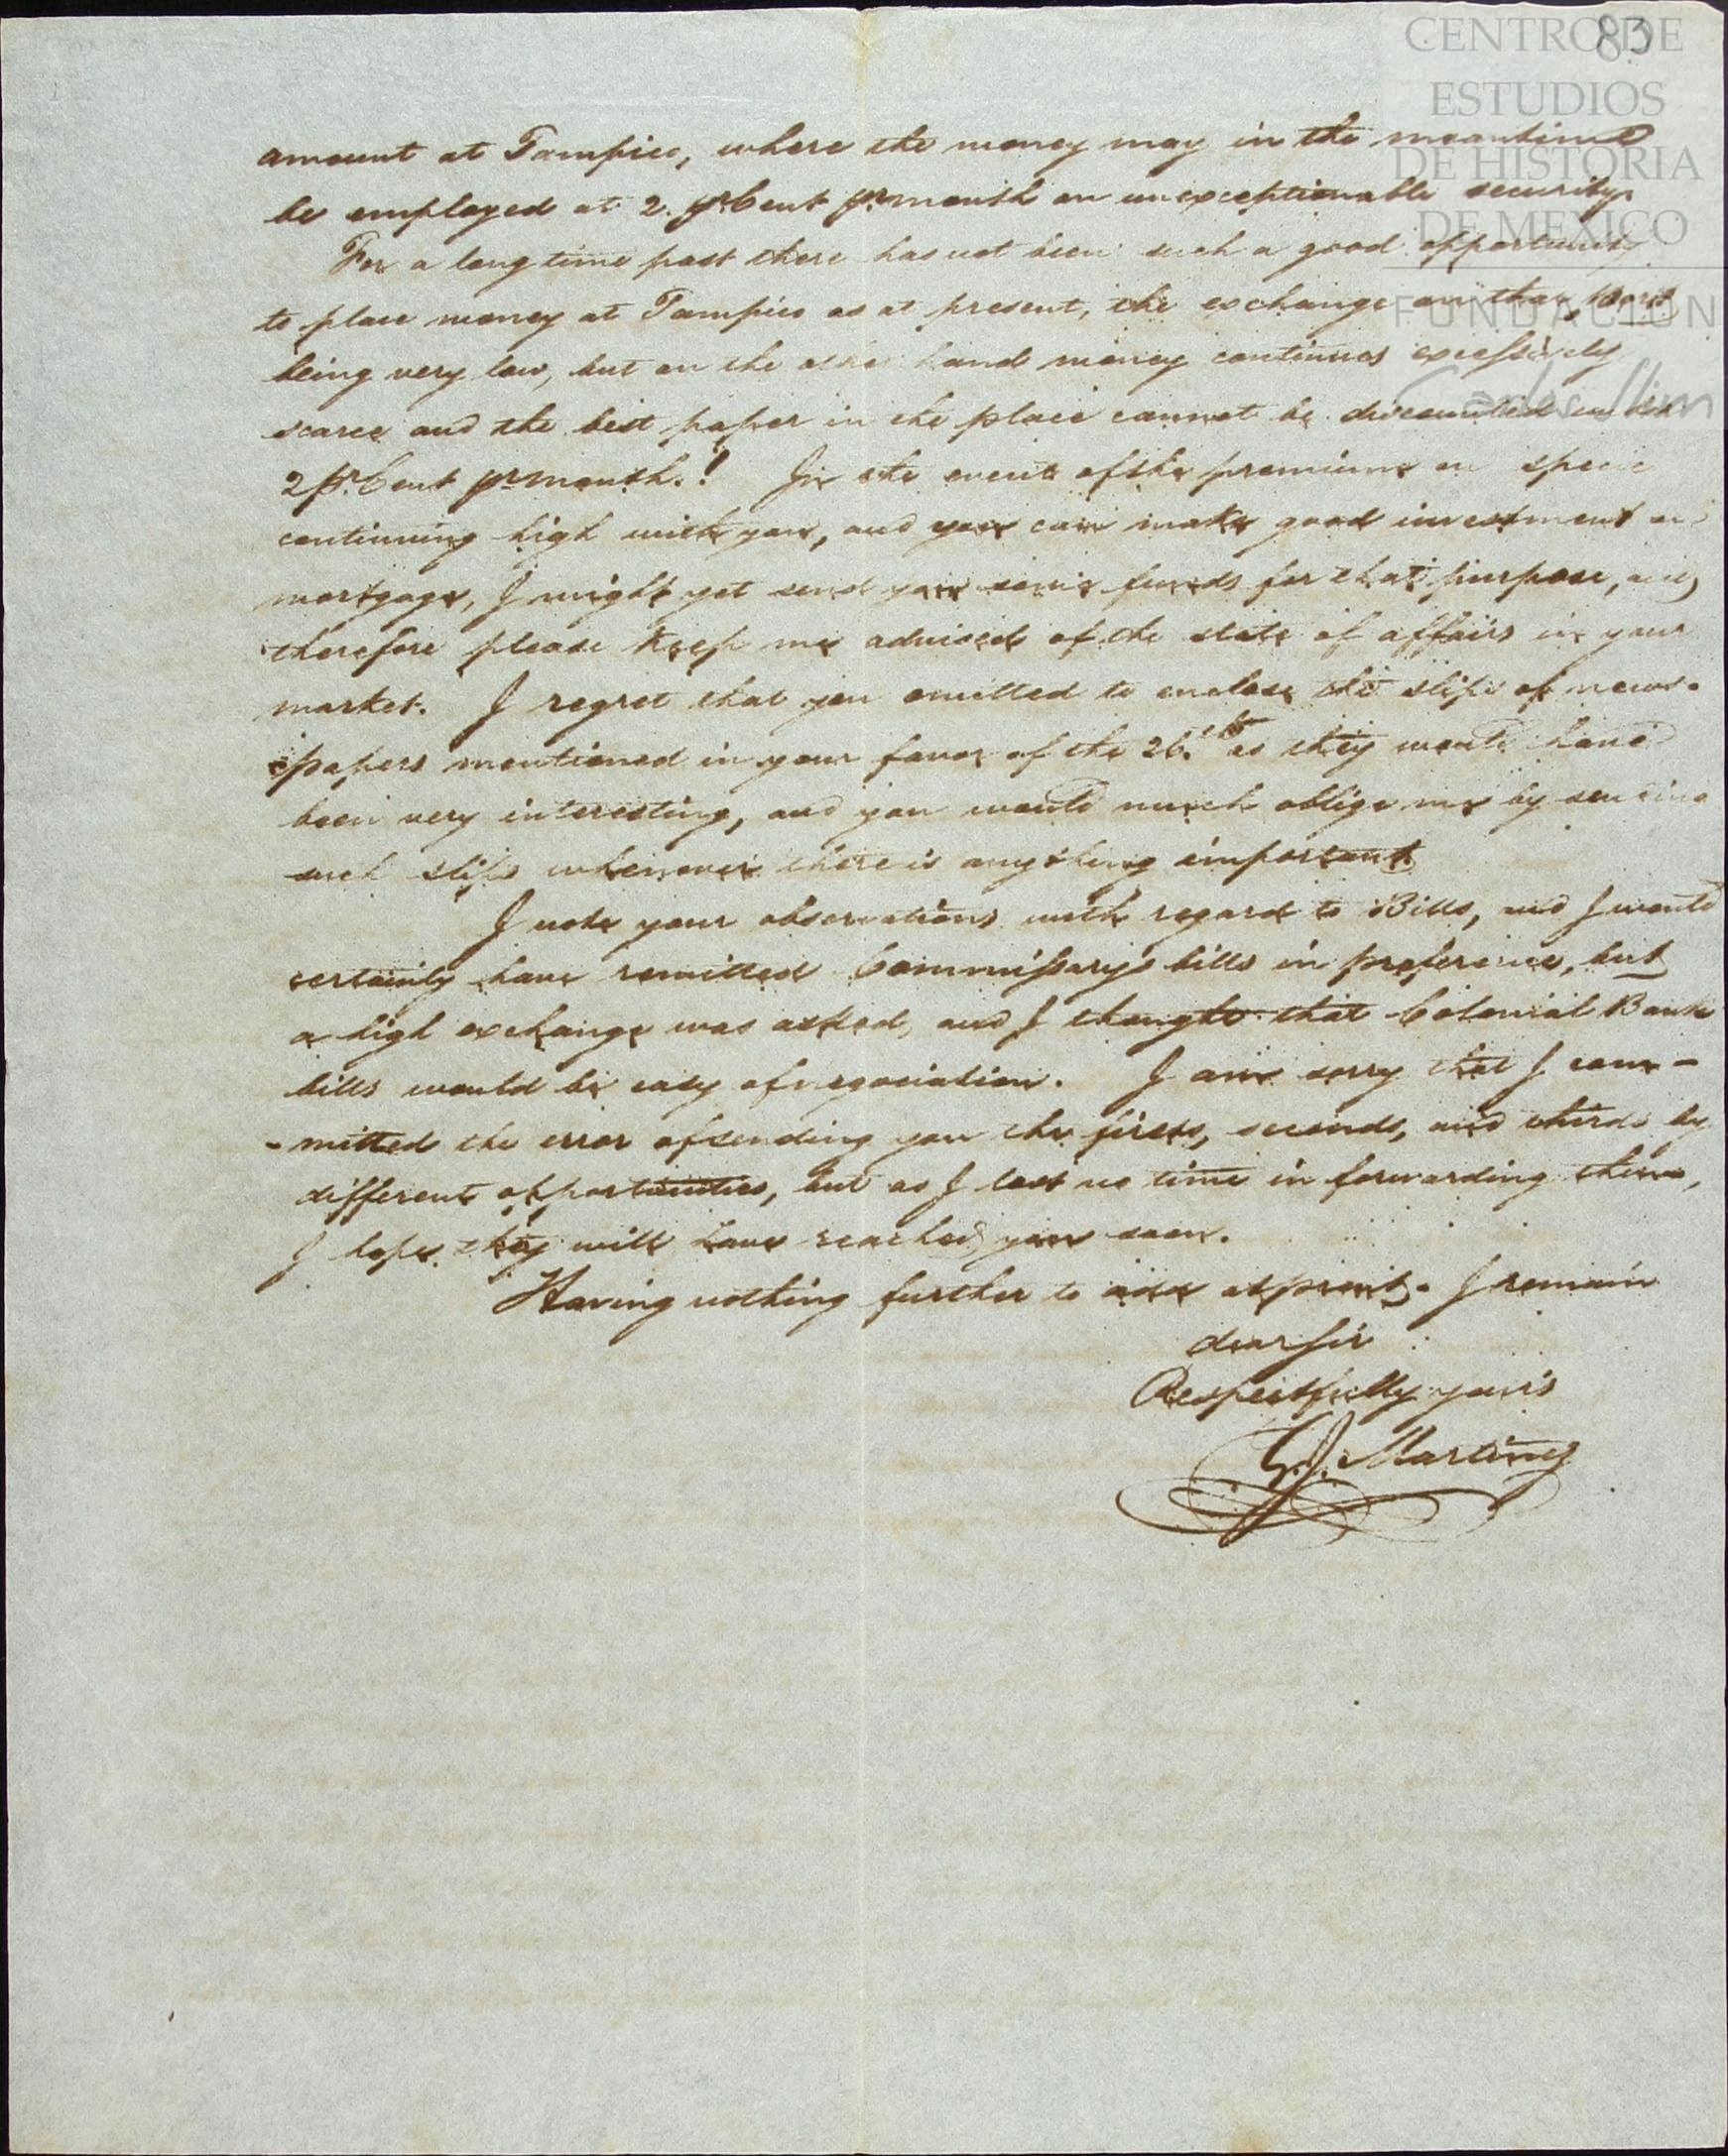 83
CENTRO DE
ESTUDIOS
DE HISTORIA
DE MEXICO
FUNDACION
Carlos Slim
amount at Tampico, where the money may in the meantime
be employed at 2. pr Cent pr month on unexceptionable security.
For a long time past there has not been such a good opportunity
to place money at Tampico as at present, the exchange on that port
being very low, but on the other hand money continues excessively
scarce and the best paper in the place cannot be discounted under
2 pr Cent pr month.! In the event of the premium on specie
continuing high with you, and you can make good investment on
mortgage, I might yet send you some funds for that purpose, and
therefore please keep me advised of the state of affairs in your
market. I regret that you omitted to enclose the slips of news-
papers mentioned in your favor of the 26.th as they would have
been very interesting, and you would much oblige me by sending
such slips whenever there is anything important
I note your observations with regard to Bills, and I would
certainly have remitted Commissary's bills in preference, but
a high exchange was asked, and I thought that Colonial Bank
bills would be easy of negociation. I am sorry that I com-
-mitted the error of sending you the firsts, seconds, and thirds by
different opportunities, but as I lost no time in forwarding them,
I hope they will have reached you soon.
Having nothing further to add at present. I remain
dear Sir
Respectfully yours
G. J. Martinez